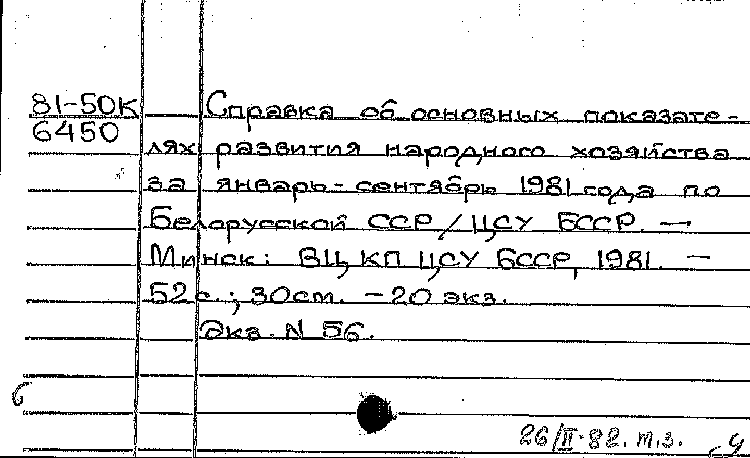 81-50К Справка об основных показате-
6450
лях развития народного хозяйства
за январь-сентябрь 1981 года по
Белорусской ССР/ЦСУ БССР. —
Минск: ВЦ КП ЦСУ БССР, 1981. —
52 с.; 30 cm. - 20 экз.
Экз. N 56.
б
26/II-82. т.з.